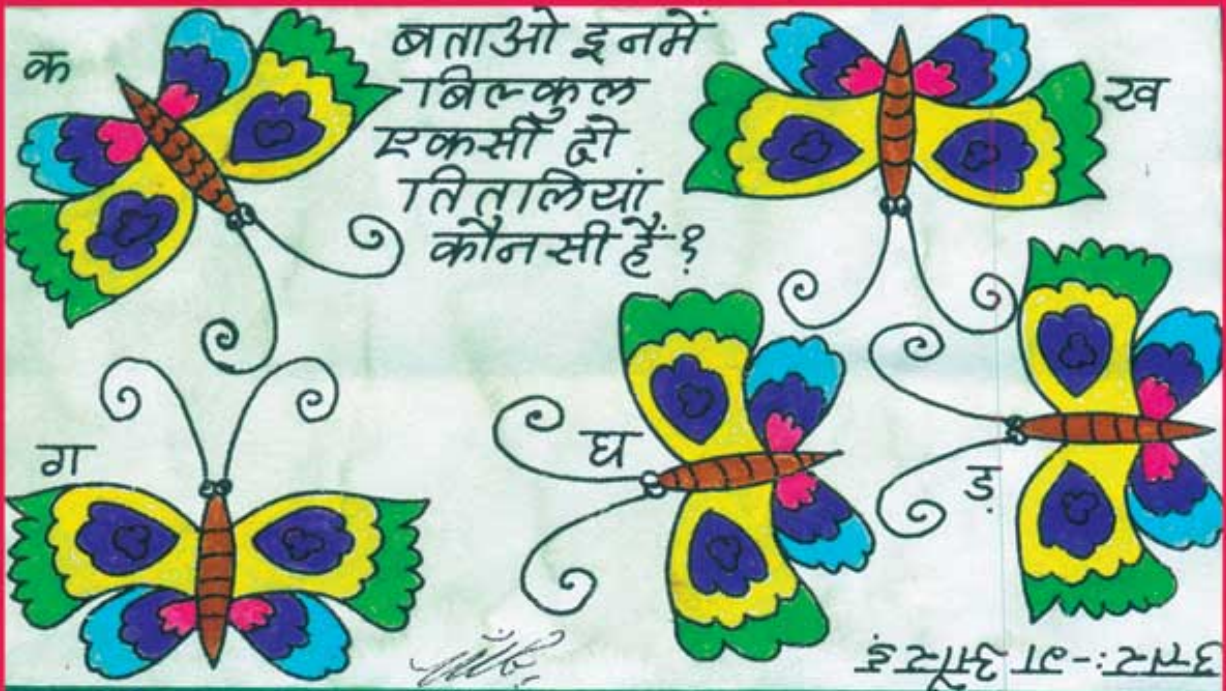 क
बताओ इनमें
बिल्कुल
एकसी दो
तितलियां
कौनसी हैं?
ख
ग
घ
ड़
उत्तर:-ग और ड़